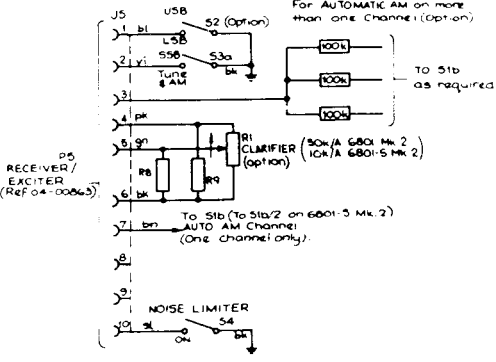 For AUTOMATIC AM on more
than one Channel (Option)
J5
USB
1 bl
S2 (Option)
LSB
SSB
2 vi
S3a
bk
Tune
& AM
100k
100k
100k
TO S1b
as required
3
4 pk
5 gn
R1
CLARIFIER
(option)
50k/A 6801 Mk.2
10k/A 6801-S Mk.2
R8
R9
6 bk
P5
RECEIVER/
EXCITER
(Ref 04-00863)
7 bn
To S1b (To S1b/2 on 6801-S Mk.2)
AUTO AM Channel
(One channel only).
8
9
NOISE LIMITER
10 sl
S4
ON
bk